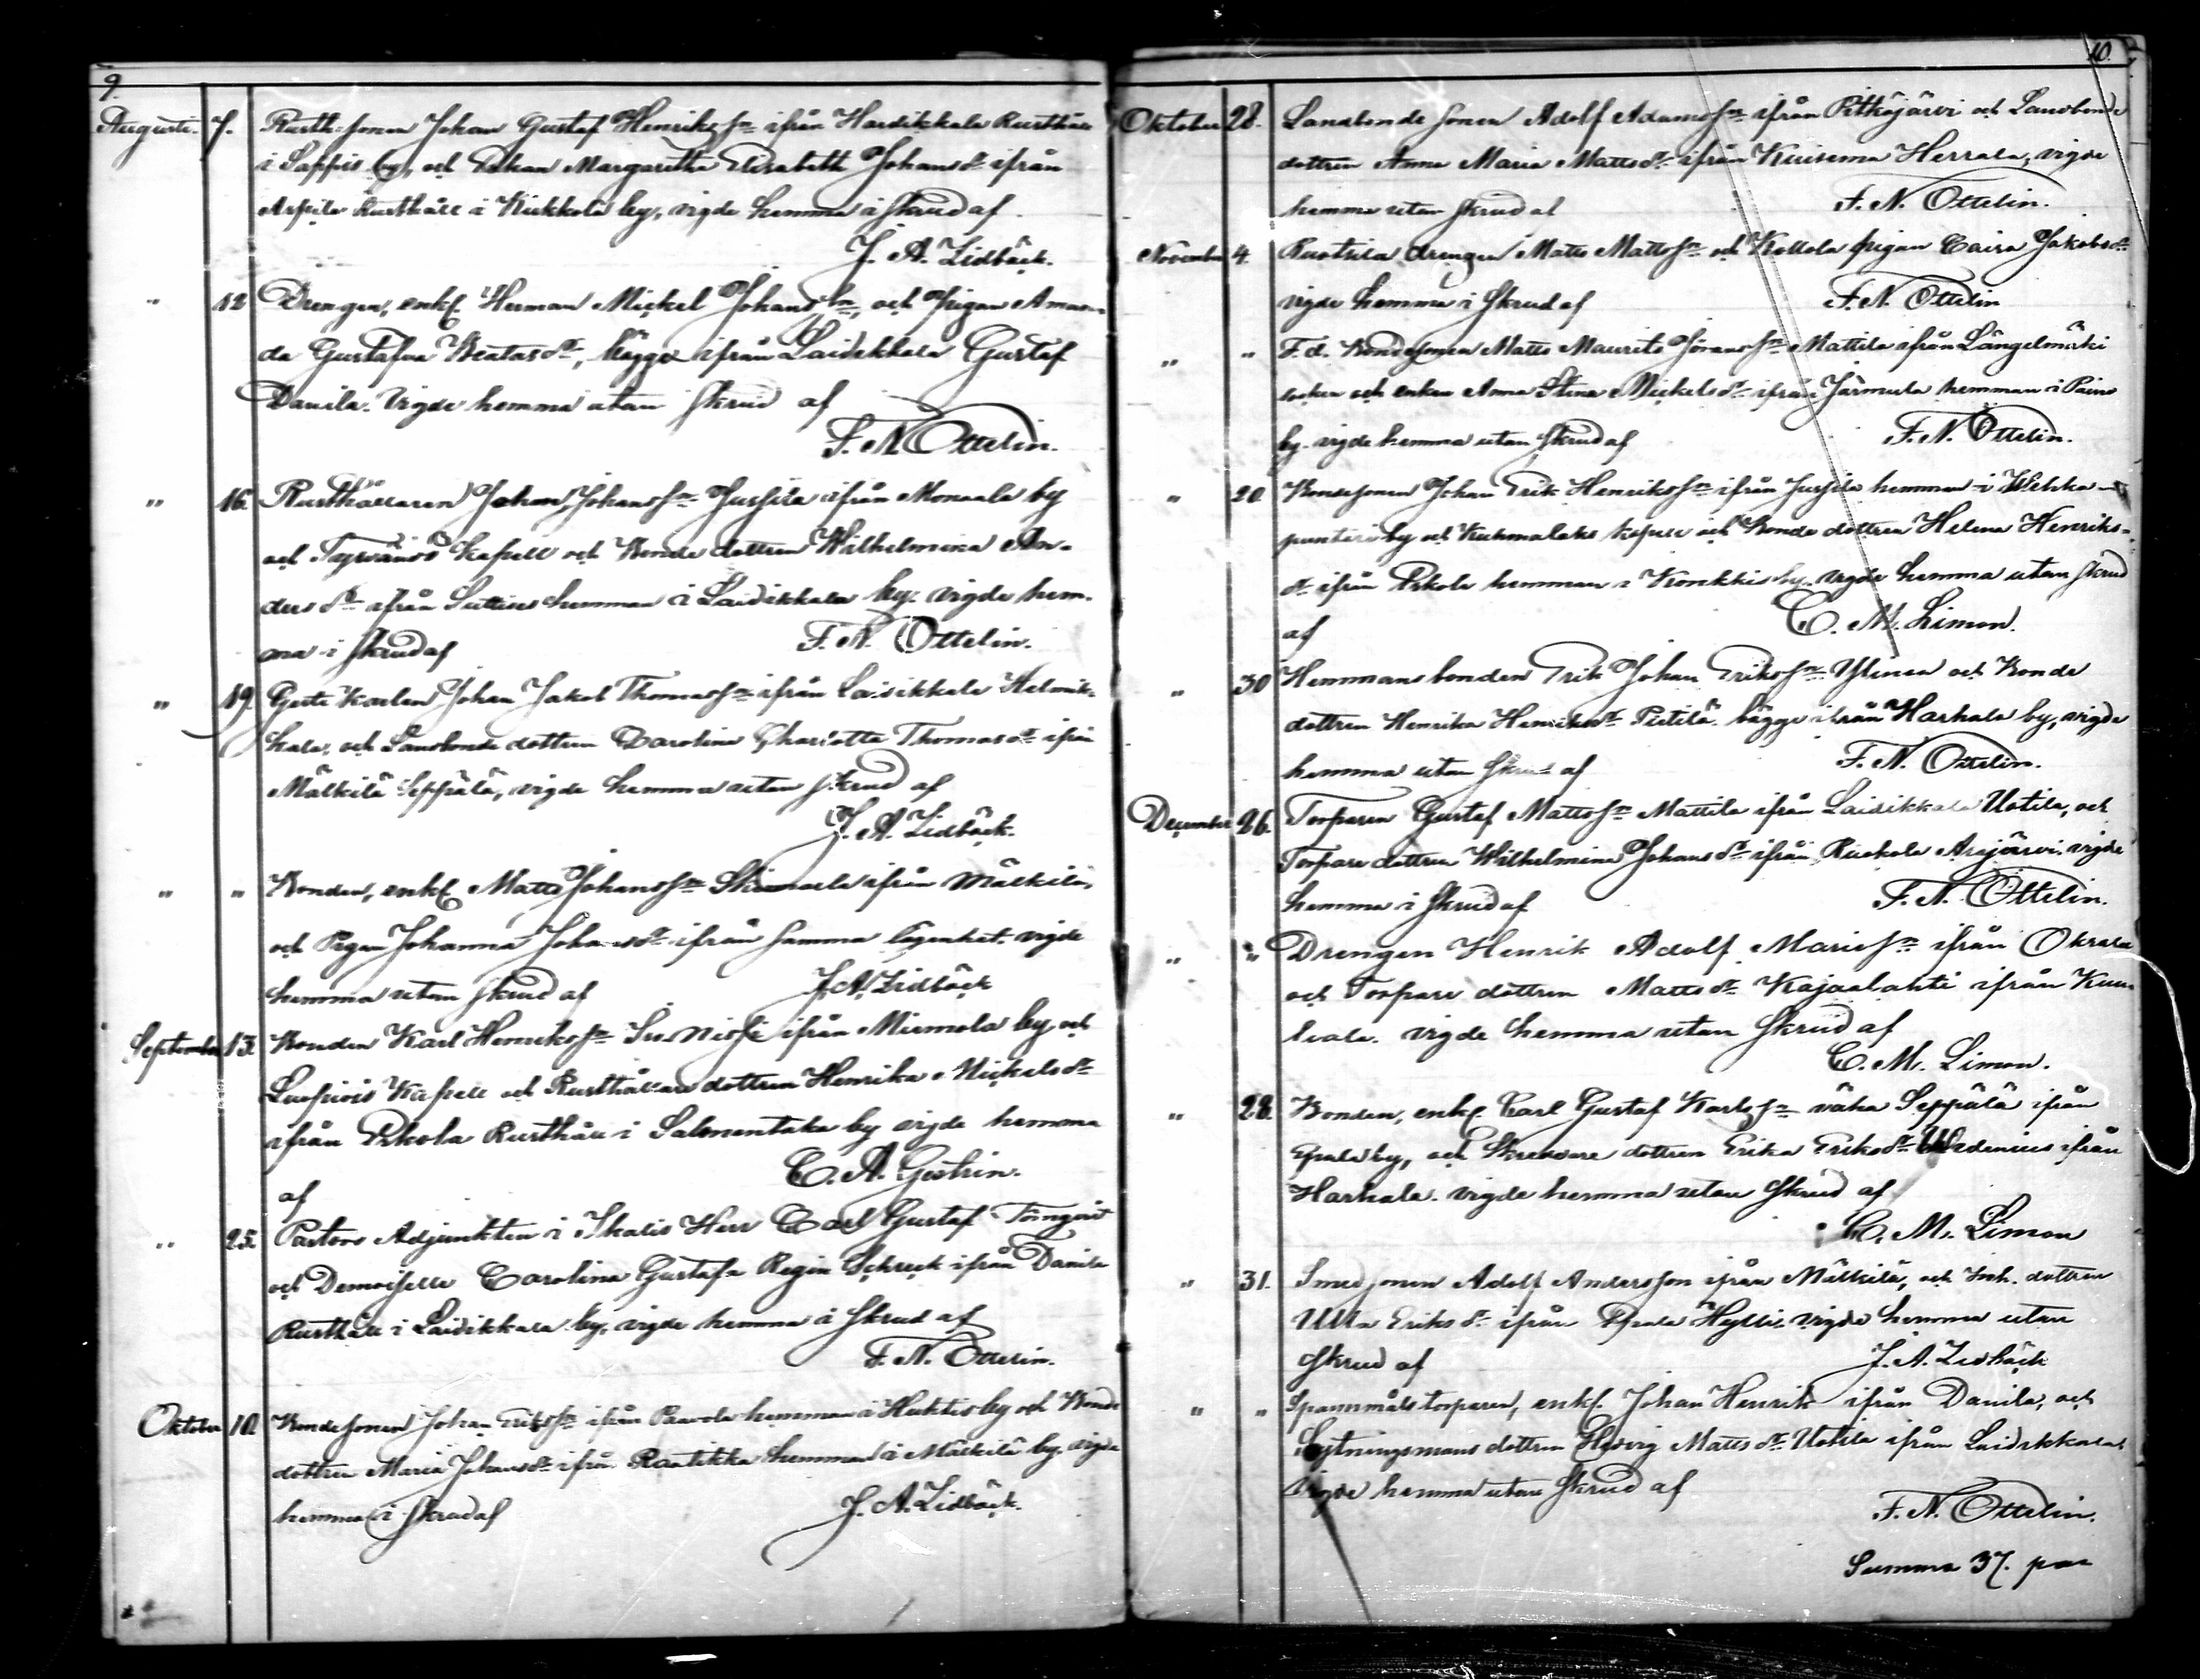 9.
Augusti. 7. Rusth. sonen Johan Gustaf Henriks sn ifrån Hardikkala Rusthåll
i Sappis by, och Pigan Margaretha Elisabeth Johans dr ifrån
Arpila Rusthåll i Kukkola by, vigde hemma i skrud af
J. A. Lidbäck.
" 12 Drengen, enkl. Herman Mickel Johans sn, och Pigan Aman-
da Gustafva Beatas dr, bägge ifrån Laidikkala Gustaf
Danila. Vigde hemma utan skrud af
F. N. Ottelin.
" 16. Rusthållaren Johan Johans sn Jussila ifrån Monaala by
och Tyrvändö Kapell och Bonde dottren Wilhelmina An-
ders dr ifrån hemman i Laidikkala by. vigde hem-
ma i skrud af F. N. Ottelin.
" 19. Geste Karlen Johan Jakob Thomas sn ifrån Laidikkala
och Landbonde dottren Carolina Charlotta Thomas dr ifrån
Mälkilä Seppälä, vigde hemma utan skrud af
J. A. Lidbäck.
" " Bonden, enkl. Matts Johans sn ifrån Mälkilä,
och Pigan Johanna Johans dr ifrån samma lägenhet. vigde
hemma utan skrud af J. A. Lidbäck
September 13. Bonden Karl Henriks sn ifrån by och
Luopiois Kapell och Rusthållare dottren Henrika Mickels dr
ifrån Eskola Rusthåll i Salmentaka by vigde hemma
af C. A. Gestrin.
" 25. Pastors Adjunkten i Ikalis Herr Carl Gustaf Törnqvist
och Demoiselle Carolina Gustafa Regin Schreck ifrån Danila
Rusthåll i Laidikkala by, vigde hemma i skrud af
F. N. Ottelin.
Oktober 10. Bondesonen Johan Eriks sn ifrån Paavola hemman i Huktis by och Bonde
dottren Maria Johans dr ifrån Rantikka hemman i Mälkilä by, vigde
hemma i skrud af J. A. Lidbäck.
10.
Oktober 28. Landbonde sonen Adolf Adams sn ifrån Pitkäjärvi och Landbonde
dottren Anna Maria Matts dr ifrån Kuisema Herrala, vigde
hemma utan skrud af F. N. Ottelin.
November 4. Ruotsila drengen Matts Matts sn och Kollola pigan Caisa Jakobs dr
vigde hemma i skrud af F. N. Ottelin
" " F. d. Bondesonen Matts Maurits Jörans sn Mattila ifrån Längelmäki
socken och enkan Anna Stina Mickels dr ifrån Järmula hemman i Paino
by. vigde hemma utan skrud af F. N. Ottelin.
" 20. Bondesonen Johan Erik Henriks sn ifrån Jussila hemman i Wehka-
puntari by och Kuhmalaks kapell och Bonde dottren Helena Henriks-
dr ifrån Eskola hemman i Konkkis by. vigde hemma utan skrud
af C. M. Limon.
" 30 Hemmansbonden Erik Johan Eriks sn Ylinen och Bonde
dottren Henrika Henriks dr Pietilä. bägge ifrån Harhala by, vigde
hemma utan skrud af F. N. Ottelin.
December 26. Torparen Gustaf Matts sn Mattila ifrån Laidikkala Uotila, och
Torpare dottren Wilhelmina Johans dr ifrån Ruokola Arajärvi. vigde
hemma i skrud af F. N. Ottelin.
" " Drengen Henrik Adolf Marie sn ifrån Okrala
och Torpare dottren Matts dr Kajaalahti ifrån Kuu-
liala. vigde hemma utan skrud af
C. M. Limon.
" 28. Bonden, enkl. Carl Gustaf Karls sn vähä Seppälä ifrån
Epala by, och Skräddare dottren Erika Eriks dr Widenius ifrån
Harhala. vigde hemma utan skrud af
C. M. Limon
" 31. Smedsonen Adolf Andersson ifrån Mälkilä, och Inh. dottren
Ulla Eriks dr ifrån Epala Hylli. vigde hemma utan
skrud af J. A. Lidbäck
" " Spannmåls torparen, enkl. Johan Henrik ifrån Danila, och
Sytningsmans dottren Hedvig Matts dr Uotila ifrån Laidikkala.
vigde hemma utan skrud af
F. N. Ottelin.
Summa 37. par